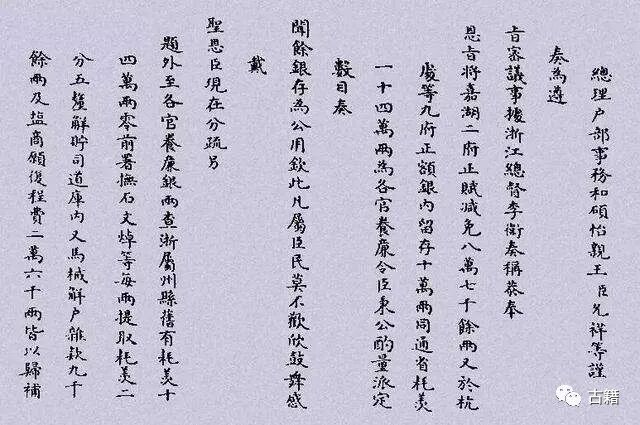 總理戶部事務和碩怡親王臣允祥等謹
奏為遵
旨審議事據浙江總督李衛奏稱恭奉
恩旨將嘉湖二府正賦減免八萬七千餘兩又於杭
等九府正額銀內留存十萬兩同通省耗羨
一十四萬兩為各官養廉令臣秉公酌量派定
數目奏
聞餘銀存為公用欽此凡屬臣民莫不歡欣鼓舞感
戴
聖恩臣現在分疏另
題外至各官養廉銀兩查浙屬州縣舊有耗羨十
四萬兩零前署撫石文焯等每兩提取耗羨二
分五釐解貯司道庫內又馬械解戶雜款九千
餘兩及塩商願復程費二萬六千兩皆以歸補
古籍